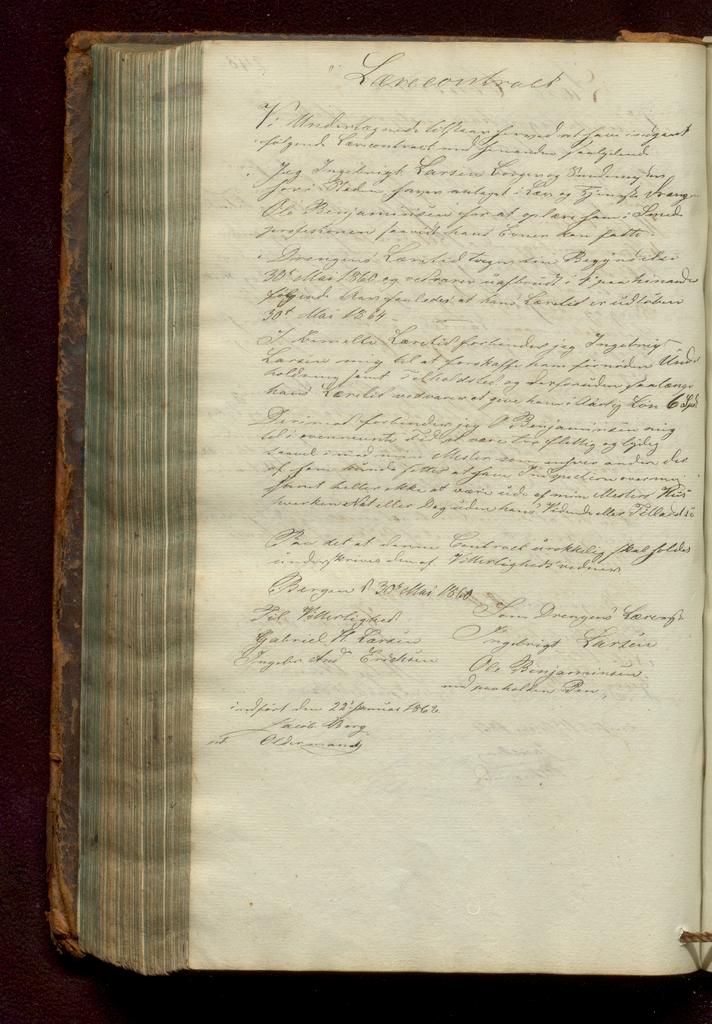 Lærecontract
Vi Undertegnede tilstaar herved at have indgaaet
følgende Lærecontract med hinanden saalydende
Jeg Ingebrigt Larsen Borger og Smedemester
her i Staden haver antaget i Lære og Tjeneste Drengen
Ole Benjaminsen for at oplære ham i Smede
professionen saavidt hans Evner kan fatte.
Drengens Læretid tager sin Begyndelse
30te Mai 1860 og vedvarer uafbrudt i 4 paa hinanden
følgende Aar saaledes at hans Læretid er udløben
30te Mai 1864
I bemeldte Læretid forbinder jeg Ingebrigt
Larsen mig til at forskaffe ham fornøden Under
holdning samt Tilholdsted og desforuden saalænge
hans Læretid vedvarer at give ham i Aarlig Løn 6 Spd
Derimod forbinder jeg O Benjaminsen mig
til i ovennævnte Tid at være tro flittig og lydig
saavel imod min Mester som enhver anden der
af ham kunde sættes at have Inspection over mig
samt heller ikke at være ude af min Mesters Huus
hverken Nat eller Dag uden hans Vidende eller Tilladelse
Paa det at denne Contract urokkelig skal holdes
underskrives den af Vitterlighedsvidner
Bergen d 30te Mai 1860
Til Vitterlighed Som Drengens Læremester
Gabriel Larsen Ingebrigt Larsen
Ericksen Ole Benjaminsen
med paaholden Pen
indført den 22 Januar 1862
Jacob Berg
Oldermand